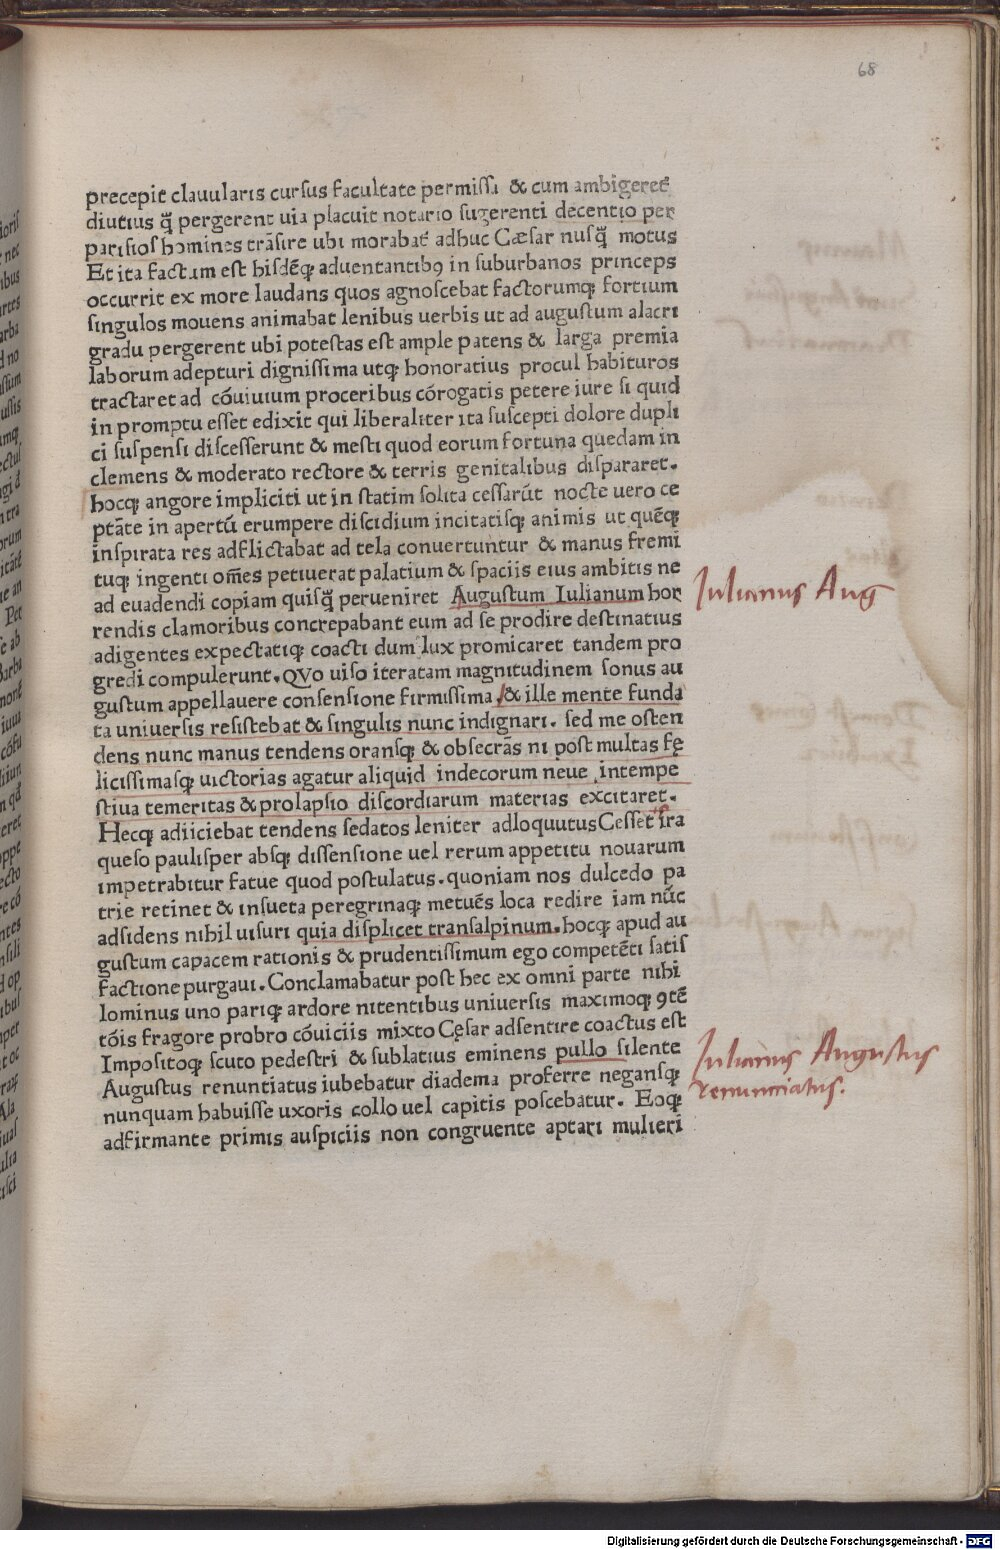 68
precepit clauularis cursus facultate permissa & cum ambigeret̃
diutius q̃ pergerent uia placuit notario sugerenti decentio per
parisios homines trãsire ubi morabat̃ adhuc Cæsar nusq̃ motus
Et ita factum est hisdẽqꝫ aduentantibꝯ in suburbanos princeps
occurrit ex more laudans quos agnoscebat factorumqꝫ fortium
singulos mouens animabat lenibus uerbis ut ad augustum alacri
gradu pergerent ubi potestas est ample patens & larga premia
laborum adepturi dignissima utqꝫ honoratius procul habituros
tractaret ad cõuiuium proceribus cõrogatis petere iure si quid
in promptu esset edixit qui liberaliter ita suscepti dolore dupli
ci suspensi discesserunt & mesti quod eorum fortuna quedam in
clemens & moderato rectore & terris genitalibus dispararet.
hocqꝫ angore impliciti ut in statim solita cessarũt nocte uero ce
ptãte in apertũ erumpere discidium incitatisqꝫ animis ut quẽqꝫ
inspirata res adflictabat ad tela conuertuntur & manus fremi
tuqꝫ ingenti om̃es petiuerat palatium & spaciis eius ambitis ne
ad euadendi copiam quisq̃ perueniret Augustum Iulianum hor
rendis clamoribus concrepabant eum ad se prodire destinatius
adigentes expectatiqꝫ coacti dum lux promicaret tandem pro
gredi compulerunt. QVo uiso iteratam magnitudinem sonus au
gustum appellauere consensione firmissima. & ille mente funda
ta uniuersis resistebat & singulis nunc indignari. sed me osten
dens nunc manus tendens oransqꝫ & obsecrãs ni post multas fę
licissimasqꝫ uictorias agatur aliquid indecorum neue intempe
stiua temeritas & prolapsio discordiarum materias excitaret.
Hecqꝫ adiiciebat tendens sedatos leniter adloquutus Cesset ira
queso paulisper absqꝫ dissensione uel rerum appetitu nouarum
impetrabitur fatue quod postulatus. quoniam nos dulcedo pa
trie retinet & insueta peregrinaqꝫ metuẽs loca redire iam nũc
adsidens nihil uisuri quia displicet transalpinum. hocqꝫ apud au
gustum capacem rationis & prudentissimum ego competẽti satis
factione purgaui. Conclamabatur post hec ex omni parte nihi
lominus uno pariqꝫ ardore nitentibus uniuersis maximoqꝫ ꝯtẽ
tõis fragore probro cõuiciis mixto Cęsar adsentire coactus est
Impositoqꝫ scuto pedestri & sublatius eminens pullo silente
Augustus renuntiatus iubebatur diadema proferre negansqꝫ
nunquam habuisse uxoris collo uel capitis poscebatur. Eoqꝫ
adfirmante primis auspiciis non congruente aptari mulieri
Iulianus Aug
Iulianus Augustus
renunciatus.
Digitalisierung gefördert durch die Deutsche Forschungsgemeinschaft - DFG